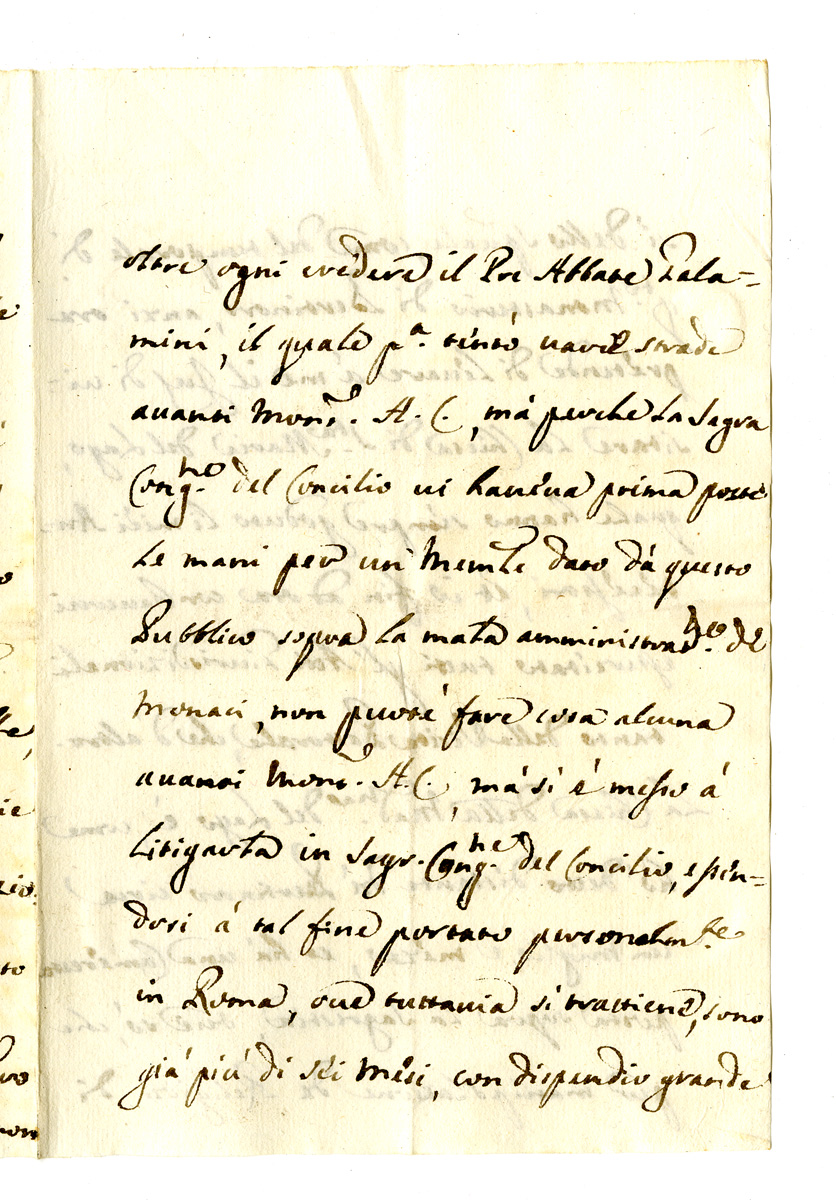 oltre ogni credere il Pre Abbate Zala=
mini, il quale p.ª tentò varie strade
auanti Mons.r A. C., mà perche la Sagra
Cong.ne del Concilio ui haueua prima poste
le mani per un Memle dato dà questo
Pubblico sopra la mala amministrat.ne de
Monaci, non puote fare cosa alcuna
auanti Mons.r A. C., mà si é messo á
litigarla in Sagr. Cong.ne del Concilio, essen=
dosi á tal fine portato personalm.te
in Roma, oue tuttauia si trattiene, sono
già più di sei Mesi, con dispendio grande